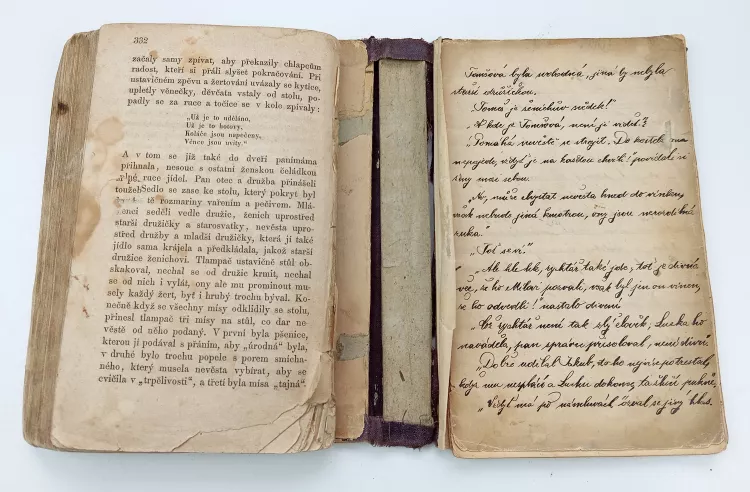 332
začaly samy zpívat, aby překazily chlapcům
radost, kteří si přáli slyšet pokračování. Při
ustavičném zpěvu a žertování uvázaly se kytice,
upletly věnečky, děvčata vstaly od stolu, po-
padly se za ruce a točice se v kolo zpívaly:
„Už je to uděláno,
Už je to hotovy,
Koláče jsou napečeny,
Věnce jsou uvity.“
A v tom se již také do dveří panímáma
přihnala, nesouc s ostatní ženskou čeládkou
plné ruce jídel. Pan otec a družba přinášeli
Sedlo se zase ke stolu, který pokryt byl
rozmariny vařením a pečivem. Mlá-
denci seděli vedle družic, ženich uprostřed
starší družičky a starosvatky, nevěsta upro-
střed družby a mladší družičky, která jí také
jídlo sama krájela a předkládala, jakož starší
družice ženichovi. Tlampač ustavičně stůl ob-
skakoval, nechal se od družic krmit, nechal
se od nich i vylát, ony ale mu prominout mu-
sely každý žert, byť i hrubý trochu býval. Ko-
nečně když se všechny mísy odklidily se stolu,
přinesl tlampač tři mísy na stůl, co dar ne-
věstě od něho podaný. V první byla pšenice,
kterou jí podával s přáním, aby „úrodná“ byla,
v druhé bylo trochu popele s porem smícha-
ného, který musela nevěsta vybírat, aby se
cvičila v „trpělivosti“, a třetí byla mísa „tajná“.
Tomšová byla svobodná, jiná by nebyla
starší družičkou.
„Tomš je ženichův
„A kde je Tomšová, není ji vidět?
„Pomáhá nevěstě se strojit. Do kostela
nepojede, vždyť je na každou chvíli!“ povídaly si
ženy mezi sebou.
„No, může chystat nevěsta hned do vínku,
však nebude jiná kmotrou, ony jsou nerozdílná
ruka.“
„Toť se ví.“
„Ale hle hle, rychtář také jde, toť je divná
věc, že ho Milovi pozvali, však byl jen on vinen,
že ho odvedli!“ nastalo divení
„Oh rychtář není tak zlý člověk, Lucka ho
naváděla, pan správce přisoloval, není divu.
„Dobře udělal Jakub, že ho nejvíce potrestal,
když mu nesplácí a Lucku dokonce ta
„Vždyť má po námluvách,“ ozval se jiný hlas.